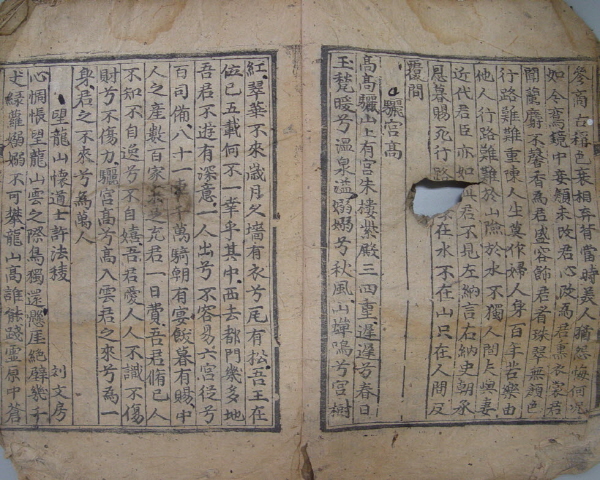 參商古稱色衰相棄背當時美人猶怨悔何况
如今鸞鏡中妾顔未改君心改爲君熏衣裳君
聞蘭麝不馨香爲君盛容飾君看珠翠無顔色
行路難難重陳人生莫作婦人身百年苦樂由
他人行路難難於山險於水不獨人間夫與妻
近代君臣亦如君不見左納言右納史朝承
恩暮賜死行路在水不在山只在人間反
覆間
驪宮高
高高驪山上有宮朱樓紫殿三四重遲遲兮春日
玉甃暖兮溫泉溢嫋嫋兮秋風山蟬鳴兮宮樹
紅翠華不來歲月久墻有衣兮瓦有松吾王在
位已五載何不一幸乎其中西去都門幾多地
吾君不遊有深意一人出兮不容易六宮從兮
百司備八十一車千萬騎朝有宴飫暮有賜中
人之産數百家未足充君一日費吾君修己人
不知不自逸兮不自嬉吾君愛人人不識不傷
財兮不傷力驪宮高兮高入雲君之來兮爲一
身君之不來兮爲萬人
望龍山懷道士許法稜 刘文房
心惆悵望龍山雲之際鳥獨還懸崖絶壁幾千
丈綠蘿嫋嫋不可攀龍山高誰能踐靈原中蒼